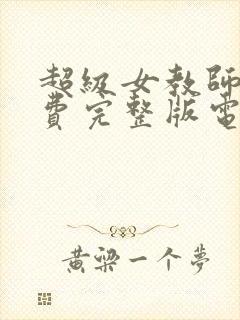 超級女教師
費完整版電
黃梁一个夢